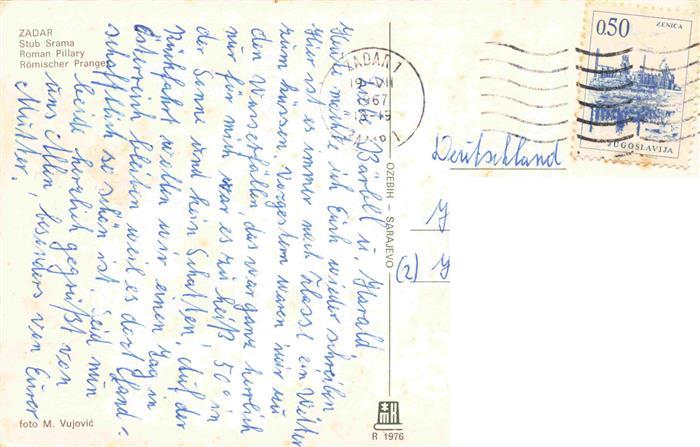 ZADAR
Stub Srama
Roman Pillary
Römischer Pranger
Bärbell u. Harald
Heute möchte ich Euch wieder schreiben
Hier ist es immer noch klasse ein Wetter
zum küssen. Vorgestern waren wir zu
den Wasserfällen, das war ganz herrlich
nur für mich war es zu heiß 50° in
der Sonne und kein Schatten. Auf der
Rückfahrt wollen wir einen Tag in
Österreich bleiben weil es dort Land-
schaftlich so schön ist. Seid nun
beide herzlich gegrüßt von
uns Allen, besonders von Eurer
Mutter.
foto M. Vujović
OZEBIH – SARAJEVO
R 1976
ZADAR 1
1967
0.50
ZENICA
JUGOSLAVIJA
Deutschland
(2)